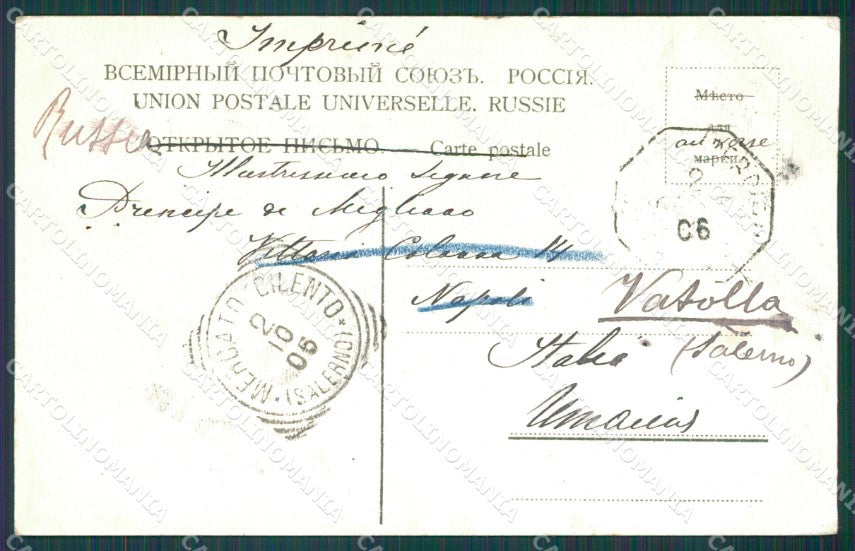 Imprimé
ВСЕМІРНЫЙ ПОЧТОВЫЙ СОЮЗЪ. РОССІЯ.
UNION POSTALE UNIVERSELLE. RUSSIE
Russie
ОТКРЫТОЕ ПИСЬМО. Carte postale
Мѣсто
для
марки.
au verso
Illustrissimo Signore
Principe di Migliano
Vittoria Colonna 14
Napoli
Vatolla
(Salerno)
Italie
MERCATO CILENTO
* (SALERNO) *
2
10
06
06
CARTOLINOMANIA